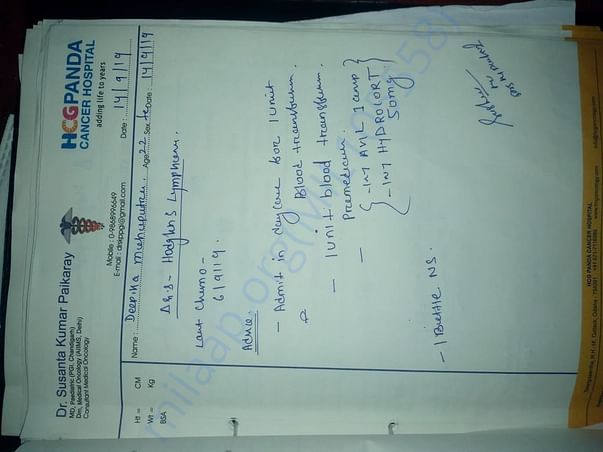 Dr. Susanta Kumar Paikaray
MD, Paediatric (PGI, Chandigarh)
Dm, Medical Oncology (AIIMS, Delhi)
Consultant Medical Oncology
Mobile : 0-9868996649
E-mail : drskppgi@gmail.com
HCGPANDA
CANCER HOSPITAL
adding life to years
Date : 14/9/19
Name : Deepika Mishraputra. Age 22 Sex Fe Date : 14/9/19
Ht = CM
Wt = Kg
BSA
Hodgkin's Lymphoma.
Last Chemo -
6/9/19.
Advice
- Admit in daycare for 1 Unit
Blood transfusion.
- 1 unit blood transfusion.
- Premedication.
- Inj AVIL 1 amp
- Inj HYDROCORT
50mg
- 1 Bottle NS.
milaap.org
HCG PANDA CANCER HOSPITAL